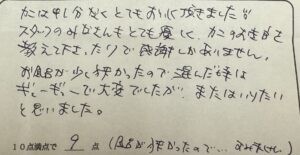 かには申し分なくとてもおいしく頂きました!!
スタッフのみなさんもとても優しく かにのお食べ方
教えて下さったりで感謝しかありません。
お風呂が少し狭かったので混んだ時は
ギューギューで大変でしたが またはいりたい
と思いました。
10点満点で 9 点 (お風呂が狭かったので… すみません)